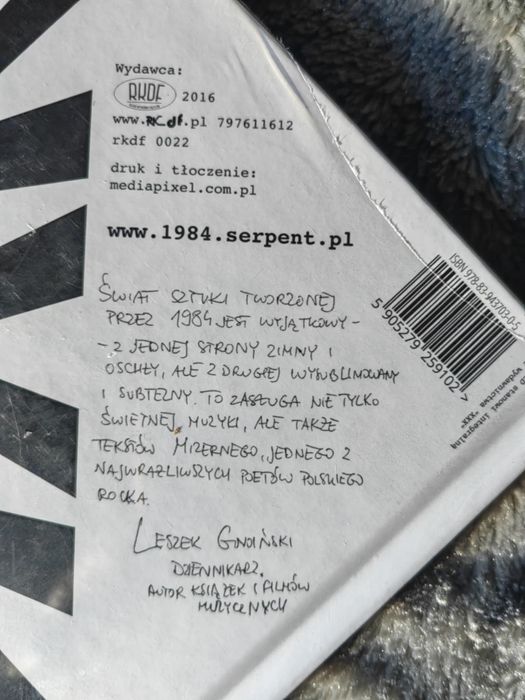 Wydawca:
RKDF 2016
www.RKdf.pl 797611612
rkdf 0022
druk i tłoczenie:
mediapixel.com.pl
www.1984.serpent.pl
ŚWIAT SZTUKI TWORZONEJ
PRZEZ 1984 JEST WYJĄTKOWY -
- Z JEDNEJ STRONY ZIMNY I
OSCHŁY, ALE Z DRUGIEJ WYSUBLIMOWANY
I SUBTELNY. TO ZASŁUGA NIE TYLKO
ŚWIETNEJ MUZYKI, ALE TAKŻE
TEKSTÓW MIZERNEGO, JEDNEGO Z
NAJWRAŻLIWSZYCH POETÓW POLSKIEGO
ROCKA.
LESZEK GNOIŃSKI
DZIENNIKARZ,
AUTOR KSIĄŻEK I FILMÓW
MUZYCZNYCH
ISBN 978-83-943703-0-5
5 905279 259102 >
stanowi integralną
wydawnictwa "XXX"